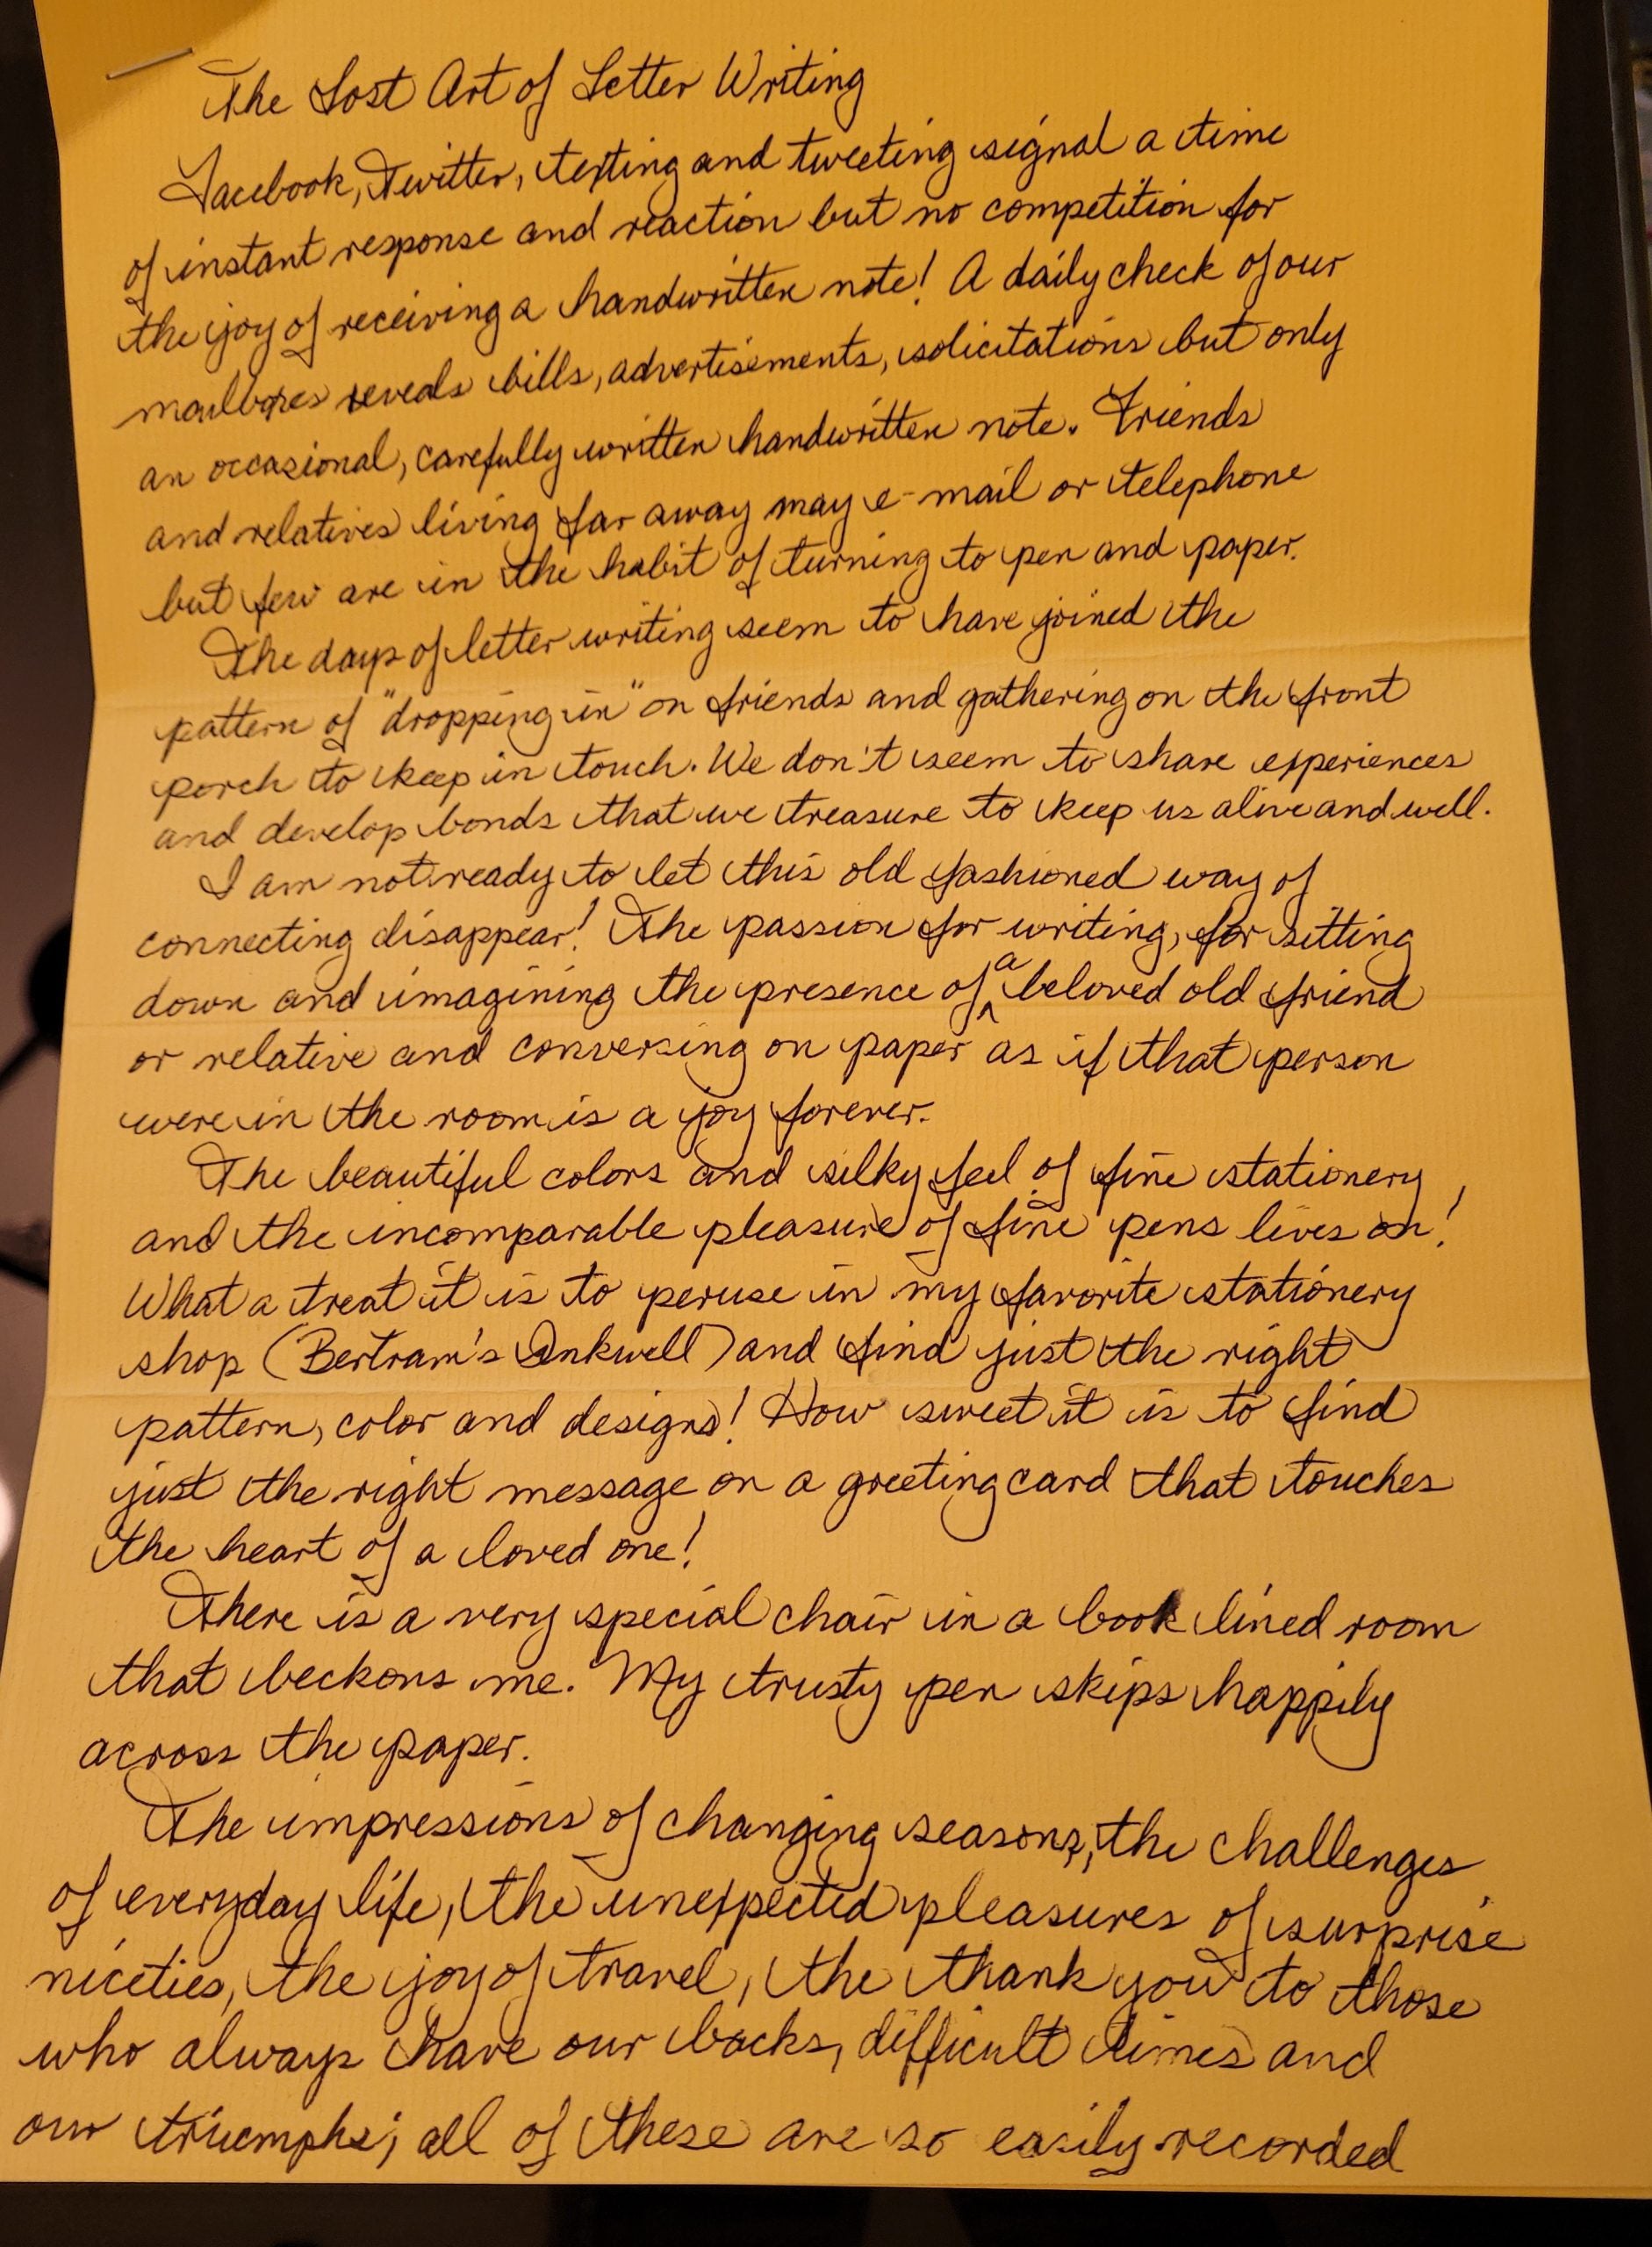 The Lost Art of Letter Writing
Facebook, Twitter, texting and tweeting signal a time
of instant response and reaction but no competition for
the joy of receiving a handwritten note! A daily check of our
mailboxes reveals bills, advertisements, solicitations but only
an occasional, carefully written handwritten note. Friends
and relatives living far away may e-mail or telephone
but few are in the habit of turning to pen and paper.
The days of letter writing seem to have joined the
pattern of "dropping in" on friends and gathering on the front
porch to keep in touch. We don't seem to share experiences
and develop bonds that we treasure to keep us alive and well.
I am not ready to let this old fashioned way of
connecting disappear! The passion for writing, for sitting
down and imagining the presence of a beloved old friend
or relative and conversing on paper as if that person
were in the room is a joy forever.
The beautiful colors and silky feel of fine stationery
and the incomparable pleasure of fine pens lives on!
What a treat it is to peruse in my favorite stationery
shop (Bertram's Inkwell) and find just the right
pattern, color and designs! How sweet it is to find
just the right message on a greeting card that touches
the heart of a loved one!
There is a very special chair in a book lined room
that beckons me. My trusty pen skips happily
across the paper.
The impressions of changing seasons, the challenges
of everyday life, the unexpected pleasures of surprise
niceties, the joy of travel, the thank you to those
who always have our backs, difficult times and
our triumphs; all of these are so easily recorded